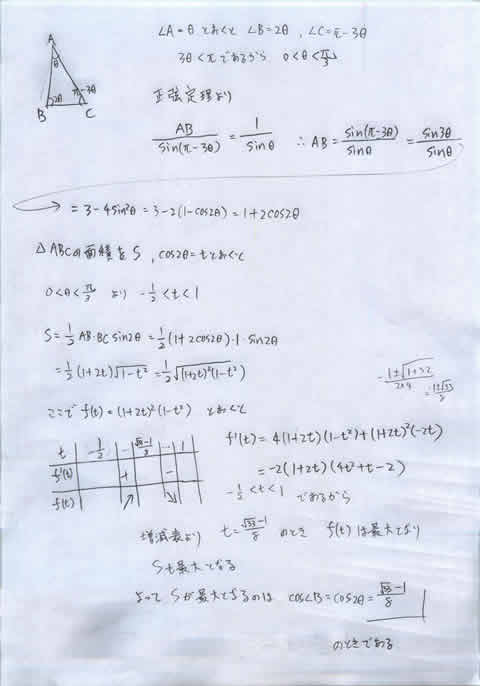 ∠A=θとおくと ∠B=2θ, ∠C=π-3θ
3θ<πであるから 0<θ<π/3
A
θ
2θ
π-3θ
B
C
正弦定理より
AB/sin(π-3θ) = 1/sinθ ∴ AB = sin(π-3θ)/sinθ = sin3θ/sinθ
= 3-4sin²θ = 3-2(1-cos2θ) = 1+2cos2θ
△ABCの面積をS, cos2θ=tとおくと
0<θ<π/3 より -1/2<t<1
S = 1/2 AB・BC sin2θ = 1/2 (1+2cos2θ)・1・sin2θ
= 1/2 (1+2t)√(1-t²) = 1/2 √((1+2t)²(1-t²))
-1±√(1+32)/2×4
= -1±√33/8
ここで f(t)=(1+2t)²(1-t²) とおくと
t -1/2 … (√33-1)/8 … 1
f'(t) + -
f(t) ↗ ↘
f'(t) = 4(1+2t)(1-t²)+(1+2t)²(-2t)
= -2(1+2t)(4t²+t-2)
-1/2<t<1 であるから
増減表より t = (√33-1)/8 のとき f(t)は最大となり
Sも最大となる
よって Sが最大となるのは cos∠B=cos2θ = (√33-1)/8
のときである